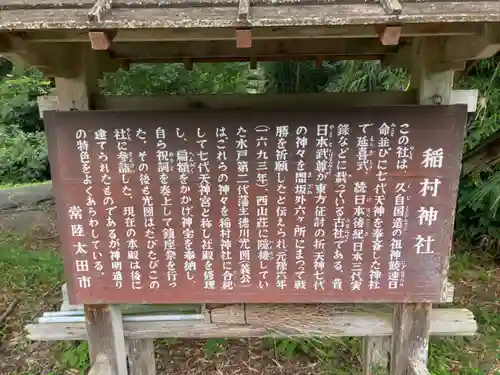 稲村神社
この社は、久自国造の祖神饒速日
命並びに七代天神を奉斎した神社
で延喜式、続日本後紀日本三代実
録などに載っている古社である。昔
日本武尊が東方征討の折天神七代
の神々を閏坂外六ヶ所にまつって戦
勝を祈願したと伝えられ元禄六年
(一六九三年)、西山荘に隠棲してい
た水戸第二代藩主徳川光圀(義公)
はこれらの神々を稲村神社に合祀
して七代天神宮と称し社殿を修理
し、扁額をかかげ神宝を奉納し、
自ら祝詞を奏上して鎮座祭を行っ
た。その後も光圀はたびたびこの
社に参詣した。現在の本殿は後に
建てられたものであるが神明造り
の特色をよくあらわしている。
常陸太田市